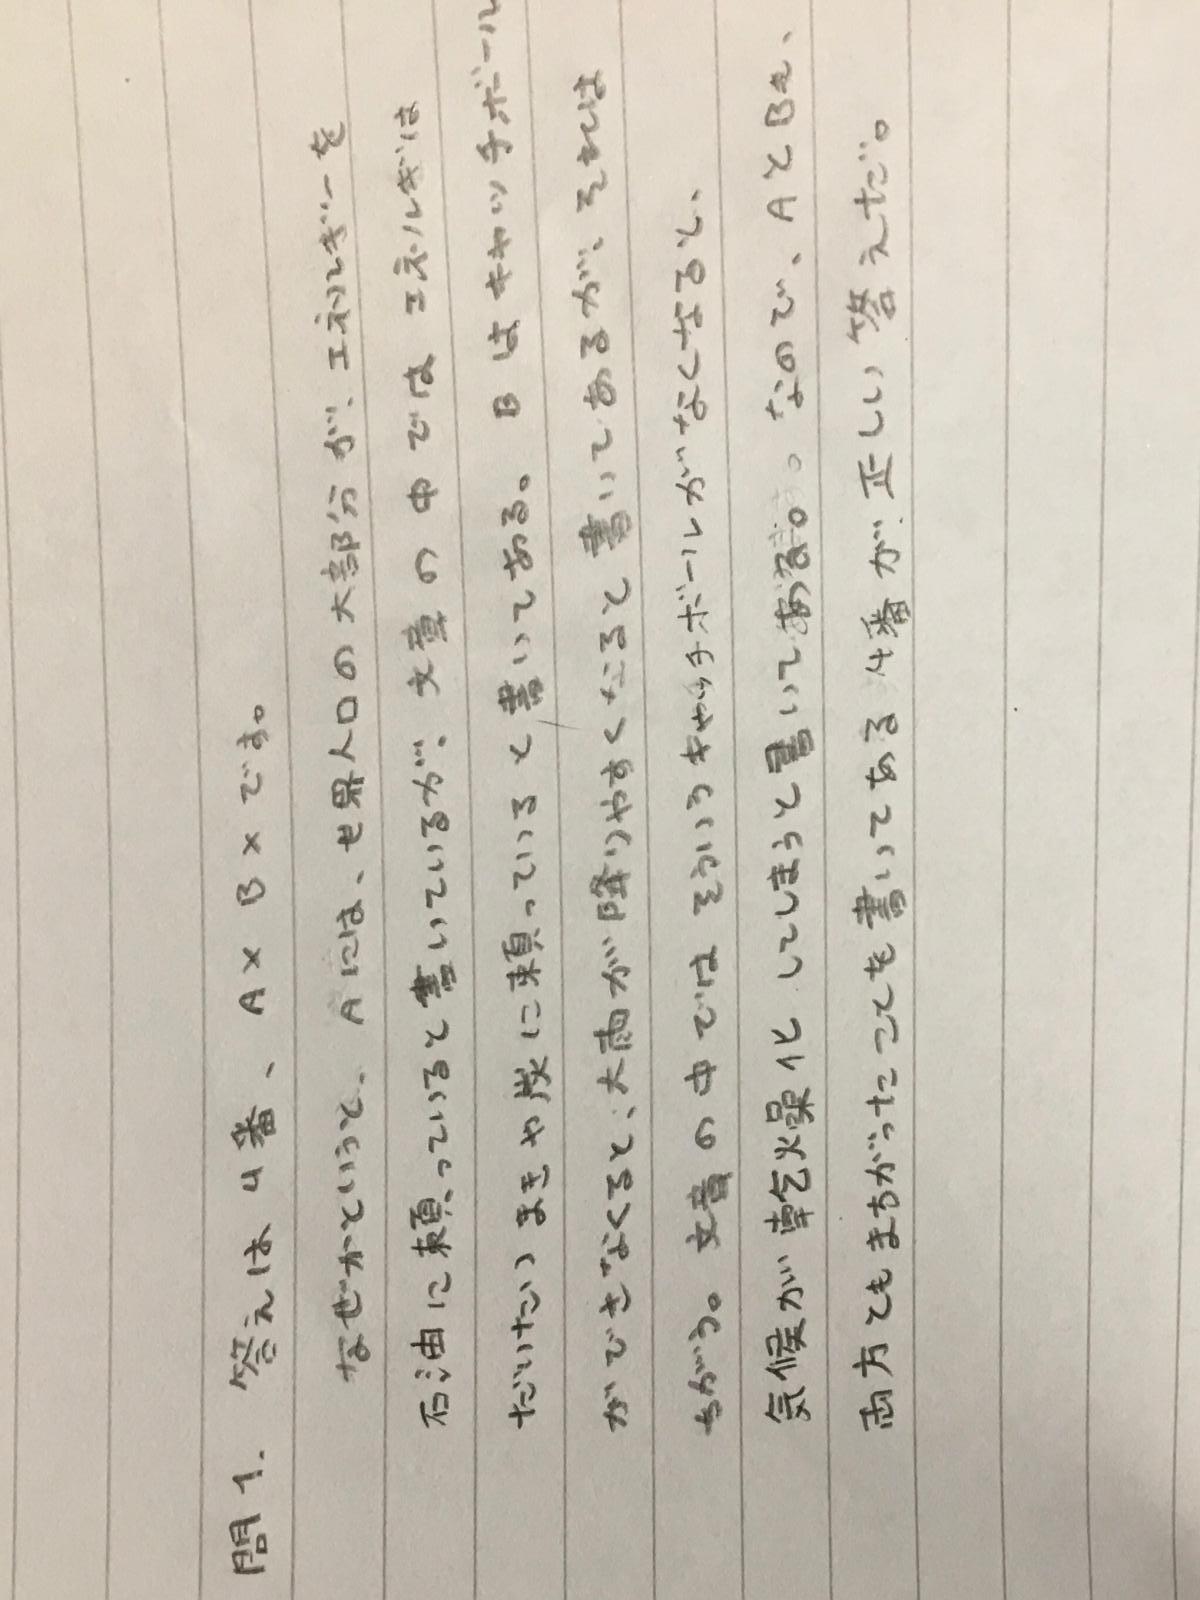 問1. 答えは4番、A×B×です。
なぜかというと、Aには、世界人口の大部分が、エネルギーを
石油に頼っていると書いているが、文章の中ではエネルギは
だいたいまきや炭に頼っていると書いてある。Bはキャッチボール
ができなくると、大雨が降りやすくなると書いてあるが、それは
ちがう。文章の中ではそういうキャッチボールがなくなると、
気候が乾燥化してしまうと書いてある。なので、AとBを、
両方ともまちがったことを書いてある4番が正しい答えだ。